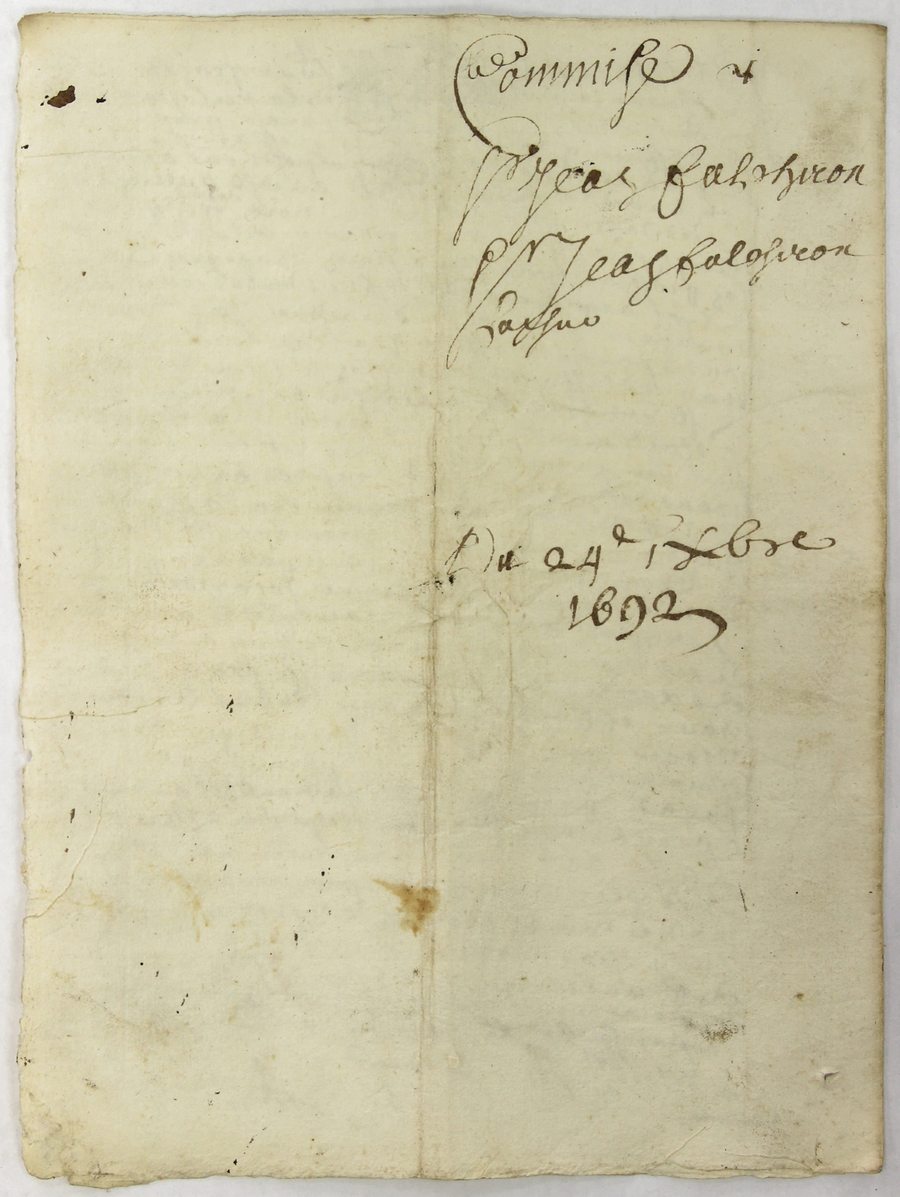 Commise
pr Jean Falchiron
pr Jean Falchiron
Du 24e Xbre
1692